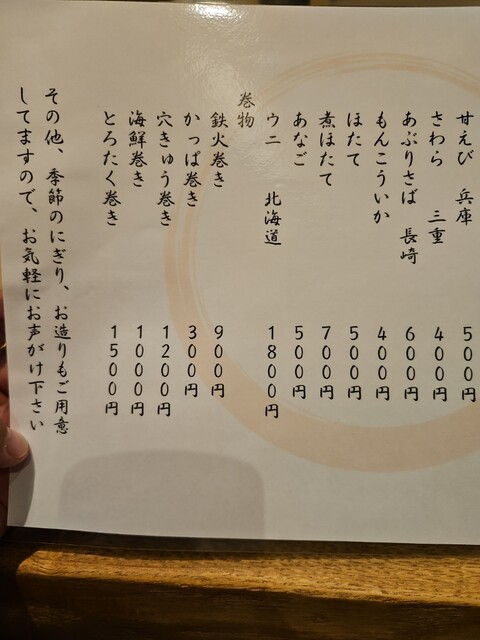 甘えび 兵庫 500円
さわら 三重 400円
あぶりさば 長崎 600円
もんこういか 400円
ほたて 500円
煮ほたて 700円
あなご 500円
ウニ 北海道 1800円
巻物
鉄火巻き 900円
かっぱ巻き 300円
穴きゅう巻き 1200円
海鮮巻き 1000円
とろたく巻き 1500円
その他、季節のにぎり、お造りもご用意
してますので、お気軽にお声がけ下さい